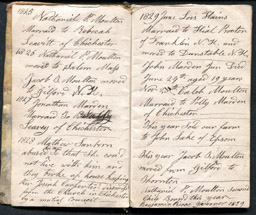 1823
Nathaniel P. Moulton
Married to Rebecah
Leavitt of Chichester
1826 Nathaniel P. Moulton
moved to Salem Mass
Jacob B Moulton moved
to Gilford N. H.
1827 Jonathan Marden
Married to
Leavy of Chichester
1828 Mathew Sanborn
that She could
not live with him and
they broke up house keeping
her
by a mutual
1829 June Levi Hains
Married to Hial Proctor
of Franklin N. H. and
moved to Dunstable N. H.
John Marden Jun Died
June 29th aged 19 years
Nov Caleb Moulton
Married to Polly Marden
of Chichester
This year Sold our farm
to John Lake of Epsom
This year Jacob B Moulton
moved from Gilford to
Thornton
Nathaniel P Moulton Second
Child Named
1829